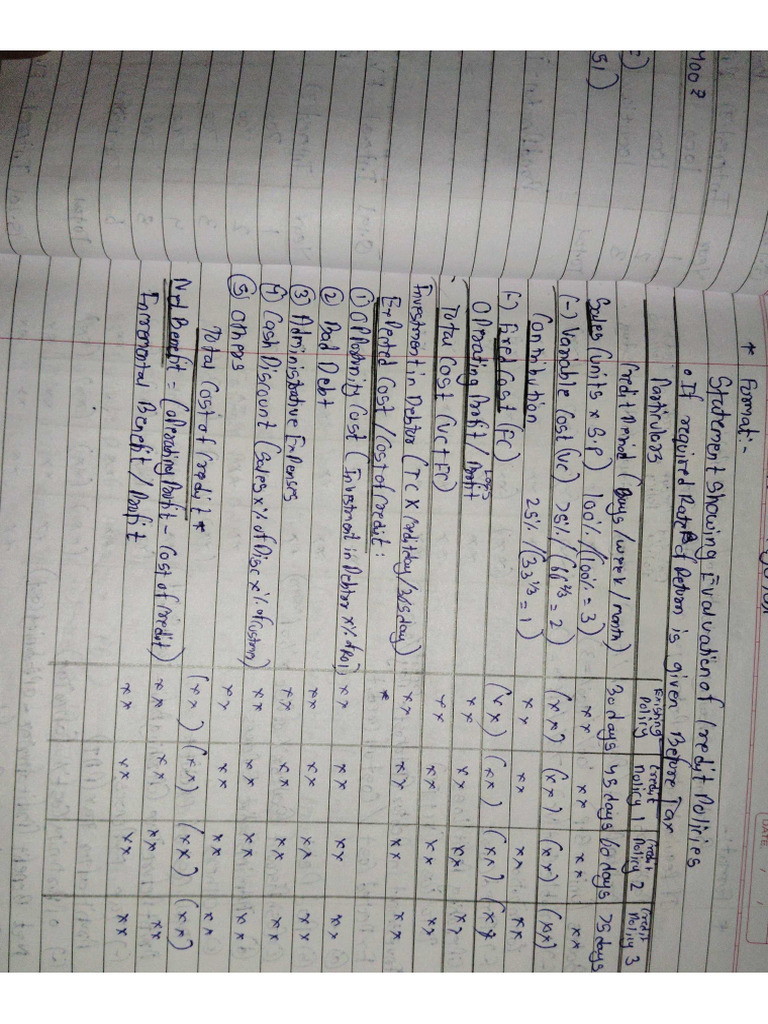 * Format :-
Statement Showing Evaluation of Credit Policies
• If required Rate of Return is given Before Tax
Particulars Existing Policy Credit Policy 1 Credit Policy 2 Credit Policy 3
Credit Period (Days/week/month) 30 days 45 days 60 days 75 days
Sales (units x S.P) 100% /(100% = 3) xx xx xx xx
(-) Variable Cost (VC) 75% /(66 2/3 = 2) (xx) (xx) (xx) (xx)
Contribution 25% /(33 1/3 = 1) xx xx xx xx
(-) Fixed Cost (FC) (xx) (xx) (xx) (xx)
Operating Profit / Profit Loss xx xx xx xx
Total Cost (VC + FC) xx xx xx xx
Investment in Debtor (TC x credit day/365 day) xx xx xx xx
Expected Cost / Cost of Credit :
① Opportunity Cost (Investment in Debtor x % of ROI) xx xx xx xx
② Bad Debt xx xx xx xx
③ Administrative Expenses xx xx xx xx
④ Cash Discount (Sales x % of Disc x % of custom) xx xx xx xx
⑤ Others xx xx xx xx
Total Cost of Credit * (xx) (xx) (xx) (xx)
Net Benefit = (Operating Profit - Cost of Credit) xx xx xx xx
Incremental Benefit / Profit xx xx xx xx